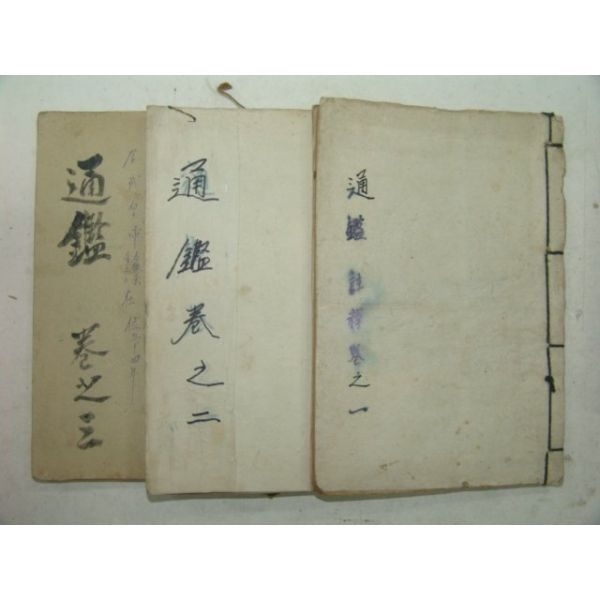 通鑑註釋卷之一
通鑑卷之二
通鑑 卷之三